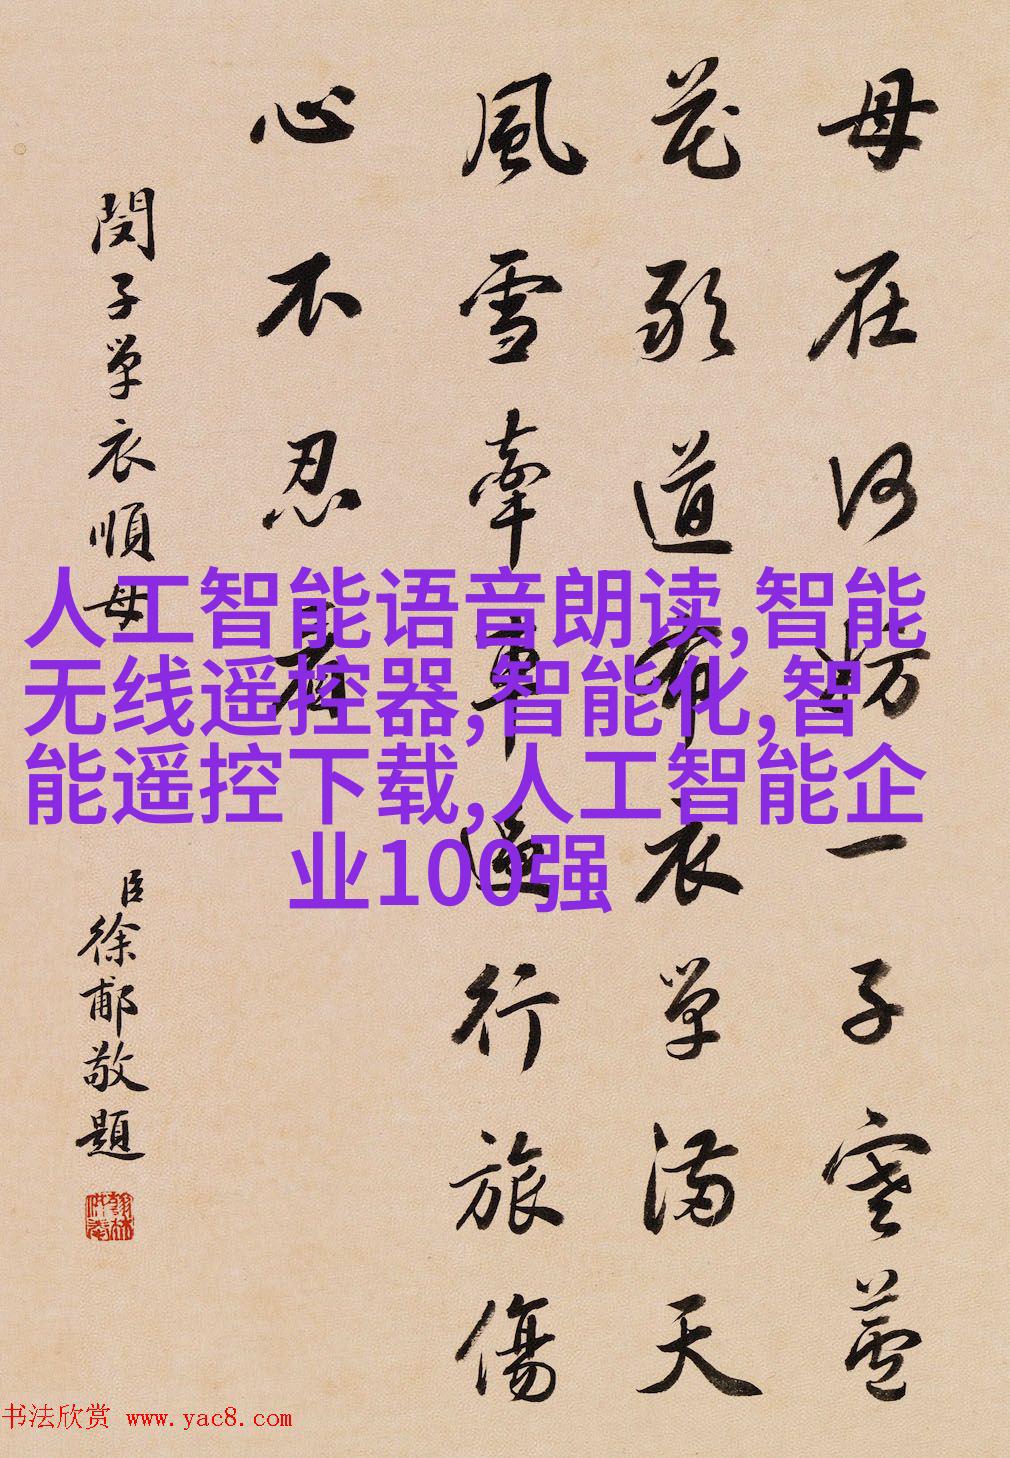 母在何妨一子寒蘆
花敢道布衣單滿天
風雪牽車過行旅傷
心不忍看
閔子單衣順母
臣徐郙敬題
人工智能语音朗读,智能
无线遥控器,智能化,智
能遥控下载,人工智能企
业100强
书法欣赏 www.yac8.com